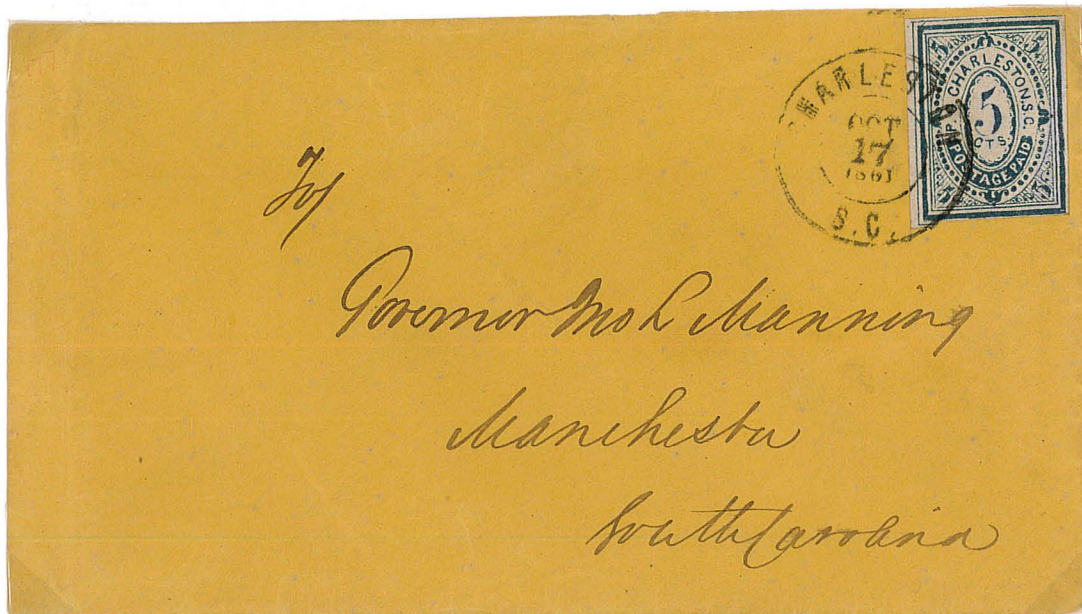 CHARLESTON
OCT
17
1861
S.C.
5 5
P.O. CHARLESTON, S.C.
5
CTS.
POSTAGE PAID
5 5
To/
Governor Jno L Manning
Manchester
South Carolina